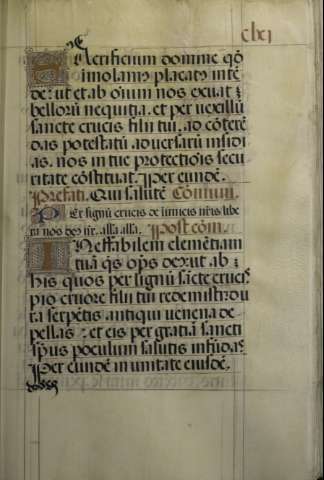 clxj
Sacrificium domine qđ
imolamꝰ placatꝰ intē
de: ut et ab oīum nos exuat
bellorū nequitia. et per uexillū
sancte crucis filii tui. ad cōterē
das potestatū aduersarū insidi
as. nos in tue protectiōis secu
ritate cōstituat. Per eundē.
Prefati. Qui salutē Commu.
Per signū crucis de inimicis nr̄is libe
ra nos deꝰ nr̄. alla. alla. Post com̄.
Ineffabilem clementiam
tuā qs om̄ps deꝰ: ut ab
his quos per signū sācte crucꝭ
pio cruore filii tui redemisti: dů
ra serpētis antiqui uenena de
pellas: et eis per gratiā sancti
sp̄us poculum salutis infūdaꝭ
Per eundē in unitate eiusdē.